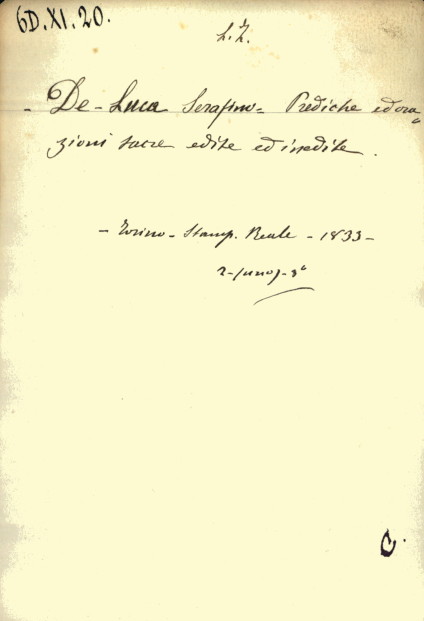 6D.XI.20.
L.Z.
- De-Luca Serafino= Prediche ed ora=
zioni sacre edite ed inedite.
- Torino - Stamp. Reale - 1833 -
8°
C.